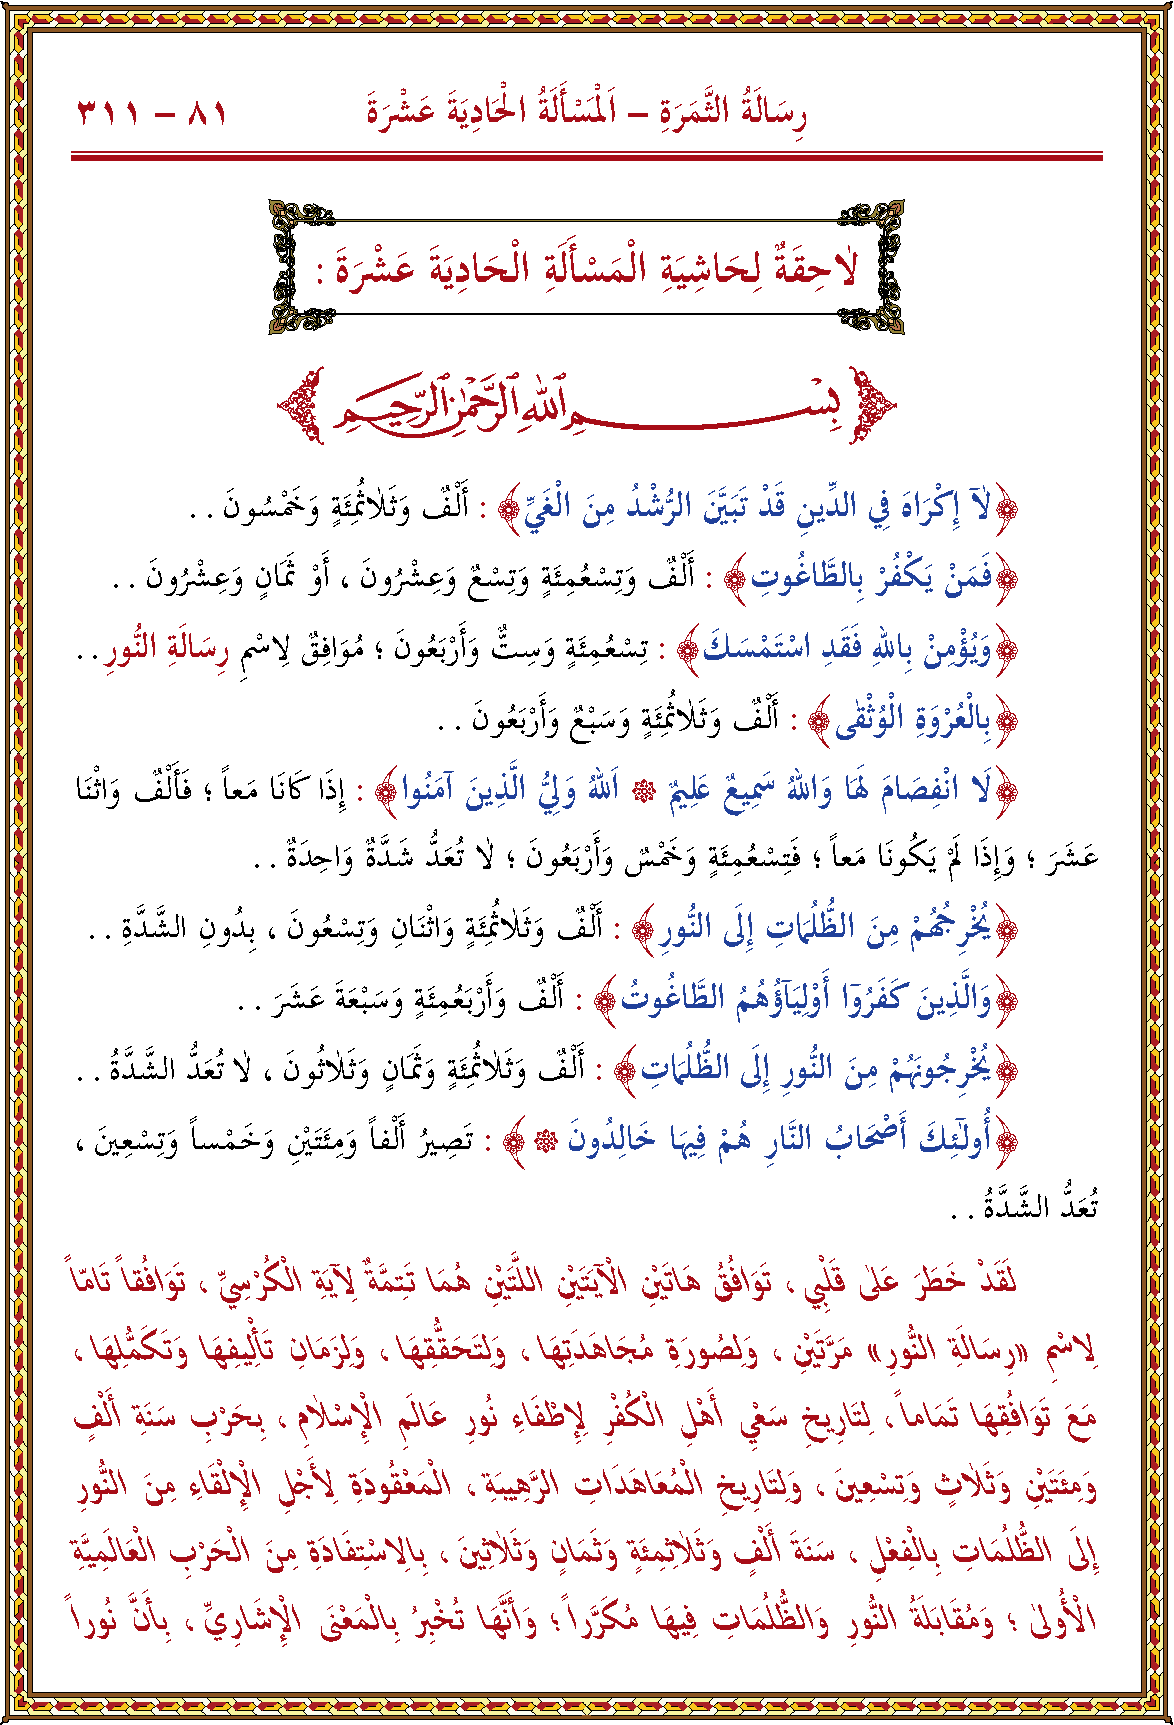 رِسَالَةُ الثَّمَرَةِ – اَلْمَسْأَلَةُ الْحَادِيَةَ عَشْرَةَ ٨١ – ٣١١
لَاحِقَةٌ لِحَاشِيَةِ الْمَسْأَلَةِ الْحَادِيَةَ عَشْرَةَ :
بِسْمِ ٱللهِ ٱلرَّحْمٰنِ ٱلرَّحِيمِ
﴿لَآ إِكْرَاهَ فِي الدِّينِ قَدْ تَبَيَّنَ الرُّشْدُ مِنَ الْغَيِّ﴾ : أَلْفٌ وَثَلَاثُمِئَةٍ وَخَمْسُونَ . .
﴿فَمَنْ يَكْفُرْ بِالطَّاغُوتِ﴾ : أَلْفٌ وَتِسْعُمِئَةٍ وَتِسْعٌ وَعِشْرُونَ ، أَوْ ثَمَانٍ وَعِشْرُونَ . .
﴿وَيُؤْمِنْ بِاللهِ فَقَدِ اسْتَمْسَكَ﴾ : تِسْعُمِئَةٍ وَسِتٌّ وَأَرْبَعُونَ ؛ مُوَافِقٌ لِاسْمِ رِسَالَةِ النُّورِ . .
﴿بِالْعُرْوَةِ الْوُثْقٰى﴾ : أَلْفٌ وَثَلَاثُمِئَةٍ وَسَبْعٌ وَأَرْبَعُونَ . .
﴿لَا انْفِصَامَ لَهَا وَاللهُ سَمِيعٌ عَلِيمٌ ۞ اَللهُ وَلِيُّ الَّذِينَ آمَنُوا﴾ : إِذَا كَانَا مَعاً ؛ فَأَلْفٌ وَاثْنَا
عَشَرَ ؛ وَإِذَا لَمْ يَكُونَا مَعاً ؛ فَتِسْعُمِئَةٍ وَخَمْسٌ وَأَرْبَعُونَ ؛ لَا تُعَدُّ شَدَّةٌ وَاحِدَةٌ . .
﴿يُخْرِجُهُمْ مِنَ الظُّلُمَاتِ إِلَى النُّورِ﴾ : أَلْفٌ وَثَلَاثُمِئَةٍ وَاثْنَانِ وَتِسْعُونَ ، بِدُونِ الشَّدَّةِ . .
﴿وَالَّذِينَ كَفَرُوٓا أَوْلِيَآؤُهُمُ الطَّاغُوتُ﴾ : أَلْفٌ وَأَرْبَعُمِئَةٍ وَسَبْعَةَ عَشَرَ . .
﴿يُخْرِجُونَهُمْ مِنَ النُّورِ إِلَى الظُّلُمَاتِ﴾ : أَلْفٌ وَثَلَاثُمِئَةٍ وَثَمَانٍ وَثَلَاثُونَ ، لَا تُعَدُّ الشَّدَّةُ . .
﴿أُولٰٓئِكَ أَصْحَابُ النَّارِ هُمْ فِيهَا خَالِدُونَ ۞﴾ : تَصِيرُ أَلْفاً وَمِئَتَيْنِ وَخَمْساً وَتِسْعِينَ ،
تُعَدُّ الشَّدَّةُ . .
لَقَدْ خَطَرَ عَلَى قَلْبِي ، تَوَافُقُ هَاتَيْنِ الْآيَتَيْنِ اللَّتَيْنِ هُمَا تَتِمَّةٌ لِآيَةِ الْكُرْسِيِّ ، تَوَافُقاً تَامّاً
لِاسْمِ «رِسَالَةِ النُّورِ» مَرَّتَيْنِ ، وَلِصُورَةِ مُجَاهَدَتِهَا ، وَلِتَحَقُّقِهَا ، وَلِزَمَانِ تَأْلِيفِهَا وَتَكَمُّلِهَا ،
مَعَ تَوَافُقِهَا تَمَاماً ، لِتَارِيخِ سَعْيِ أَهْلِ الْكُفْرِ لِإِطْفَاءِ نُورِ عَالَمِ الْإِسْلَامِ ، بِحَرْبِ سَنَةِ أَلْفٍ
وَمِئَتَيْنِ وَثَلَاثٍ وَتِسْعِينَ ، وَلِتَارِيخِ الْمُعَاهَدَاتِ الرَّهِيبَةِ ، الْمَعْقُودَةِ لِأَجْلِ الْإِلْقَاءِ مِنَ النُّورِ
إِلَى الظُّلُمَاتِ بِالْفِعْلِ ، سَنَةَ أَلْفٍ وَثَلَاثِمِئَةٍ وَثَمَانٍ وَثَلَاثِينَ ، بِالِاسْتِفَادَةِ مِنَ الْحَرْبِ الْعَالَمِيَّةِ
الْأُولَى ؛ وَمُقَابَلَةُ النُّورِ وَالظُّلُمَاتِ فِيهَا مُكَرَّراً ؛ وَأَنَّهَا تُخْبِرُ بِالْمَعْنَى الْإِشَارِيِّ ، بِأَنَّ نُوراً